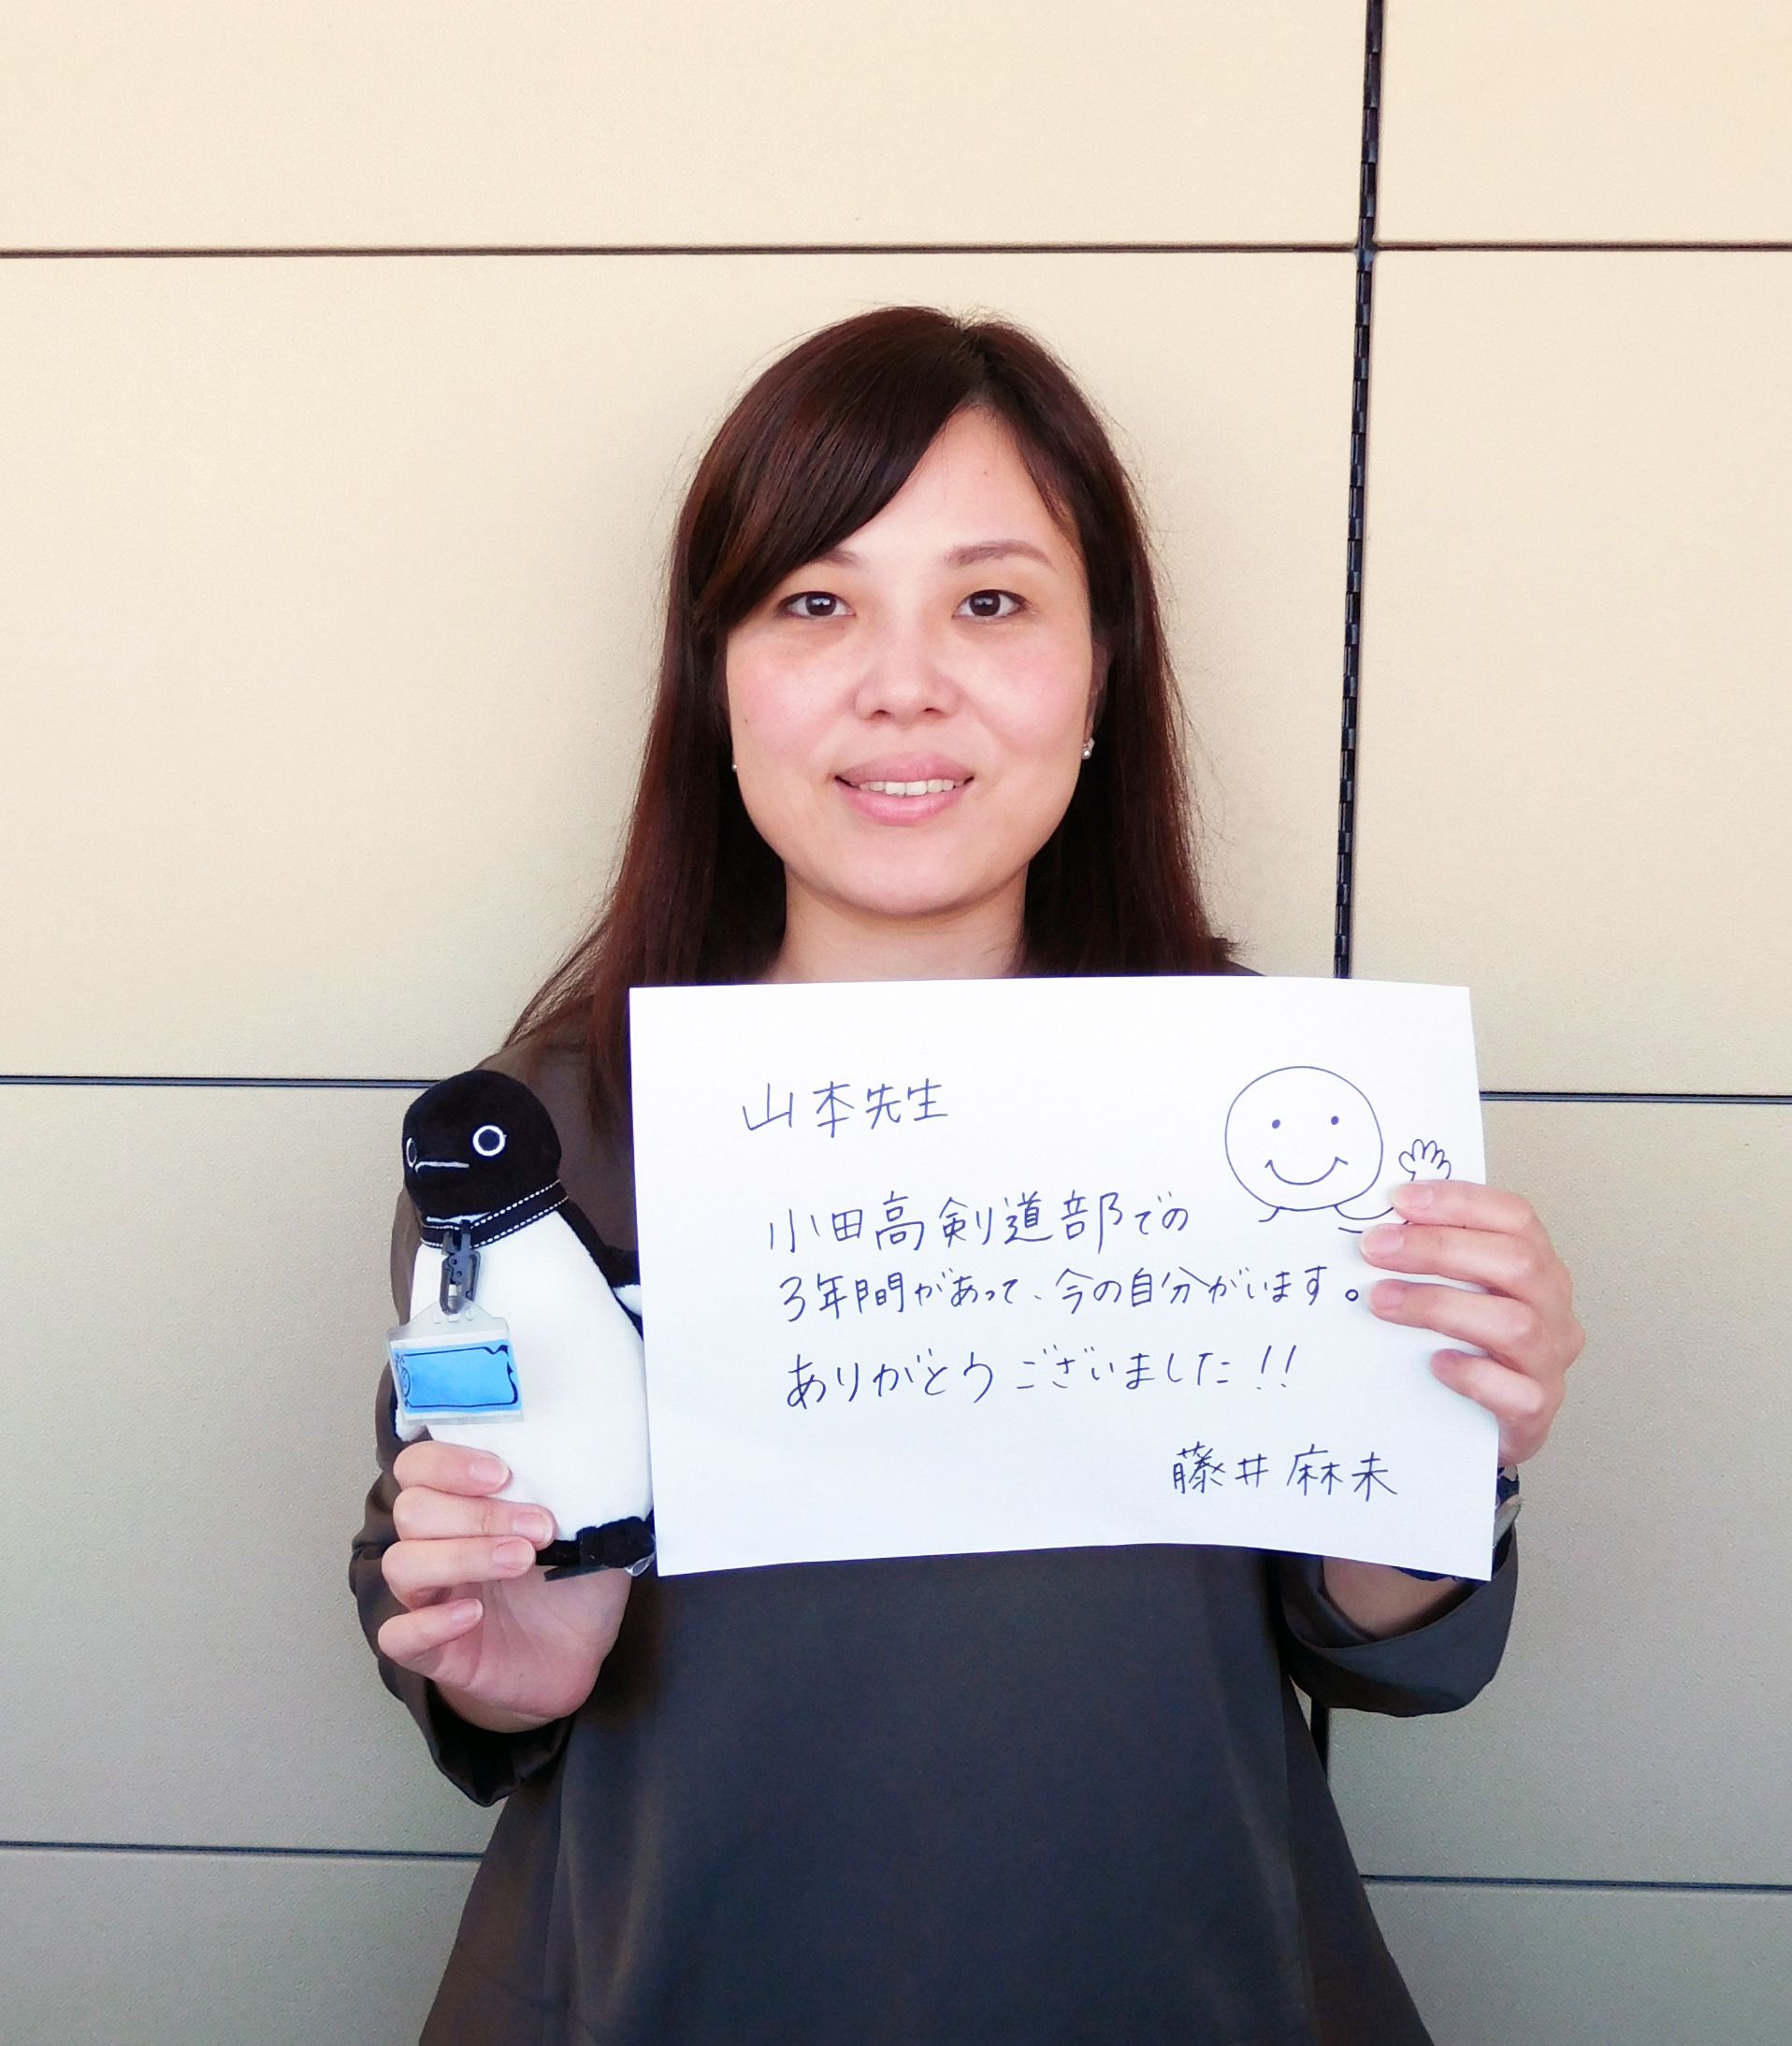 山本先生
小田高剣道部での
3年間があって、今の自分がいます。
ありがとうございました!!
藤井麻未